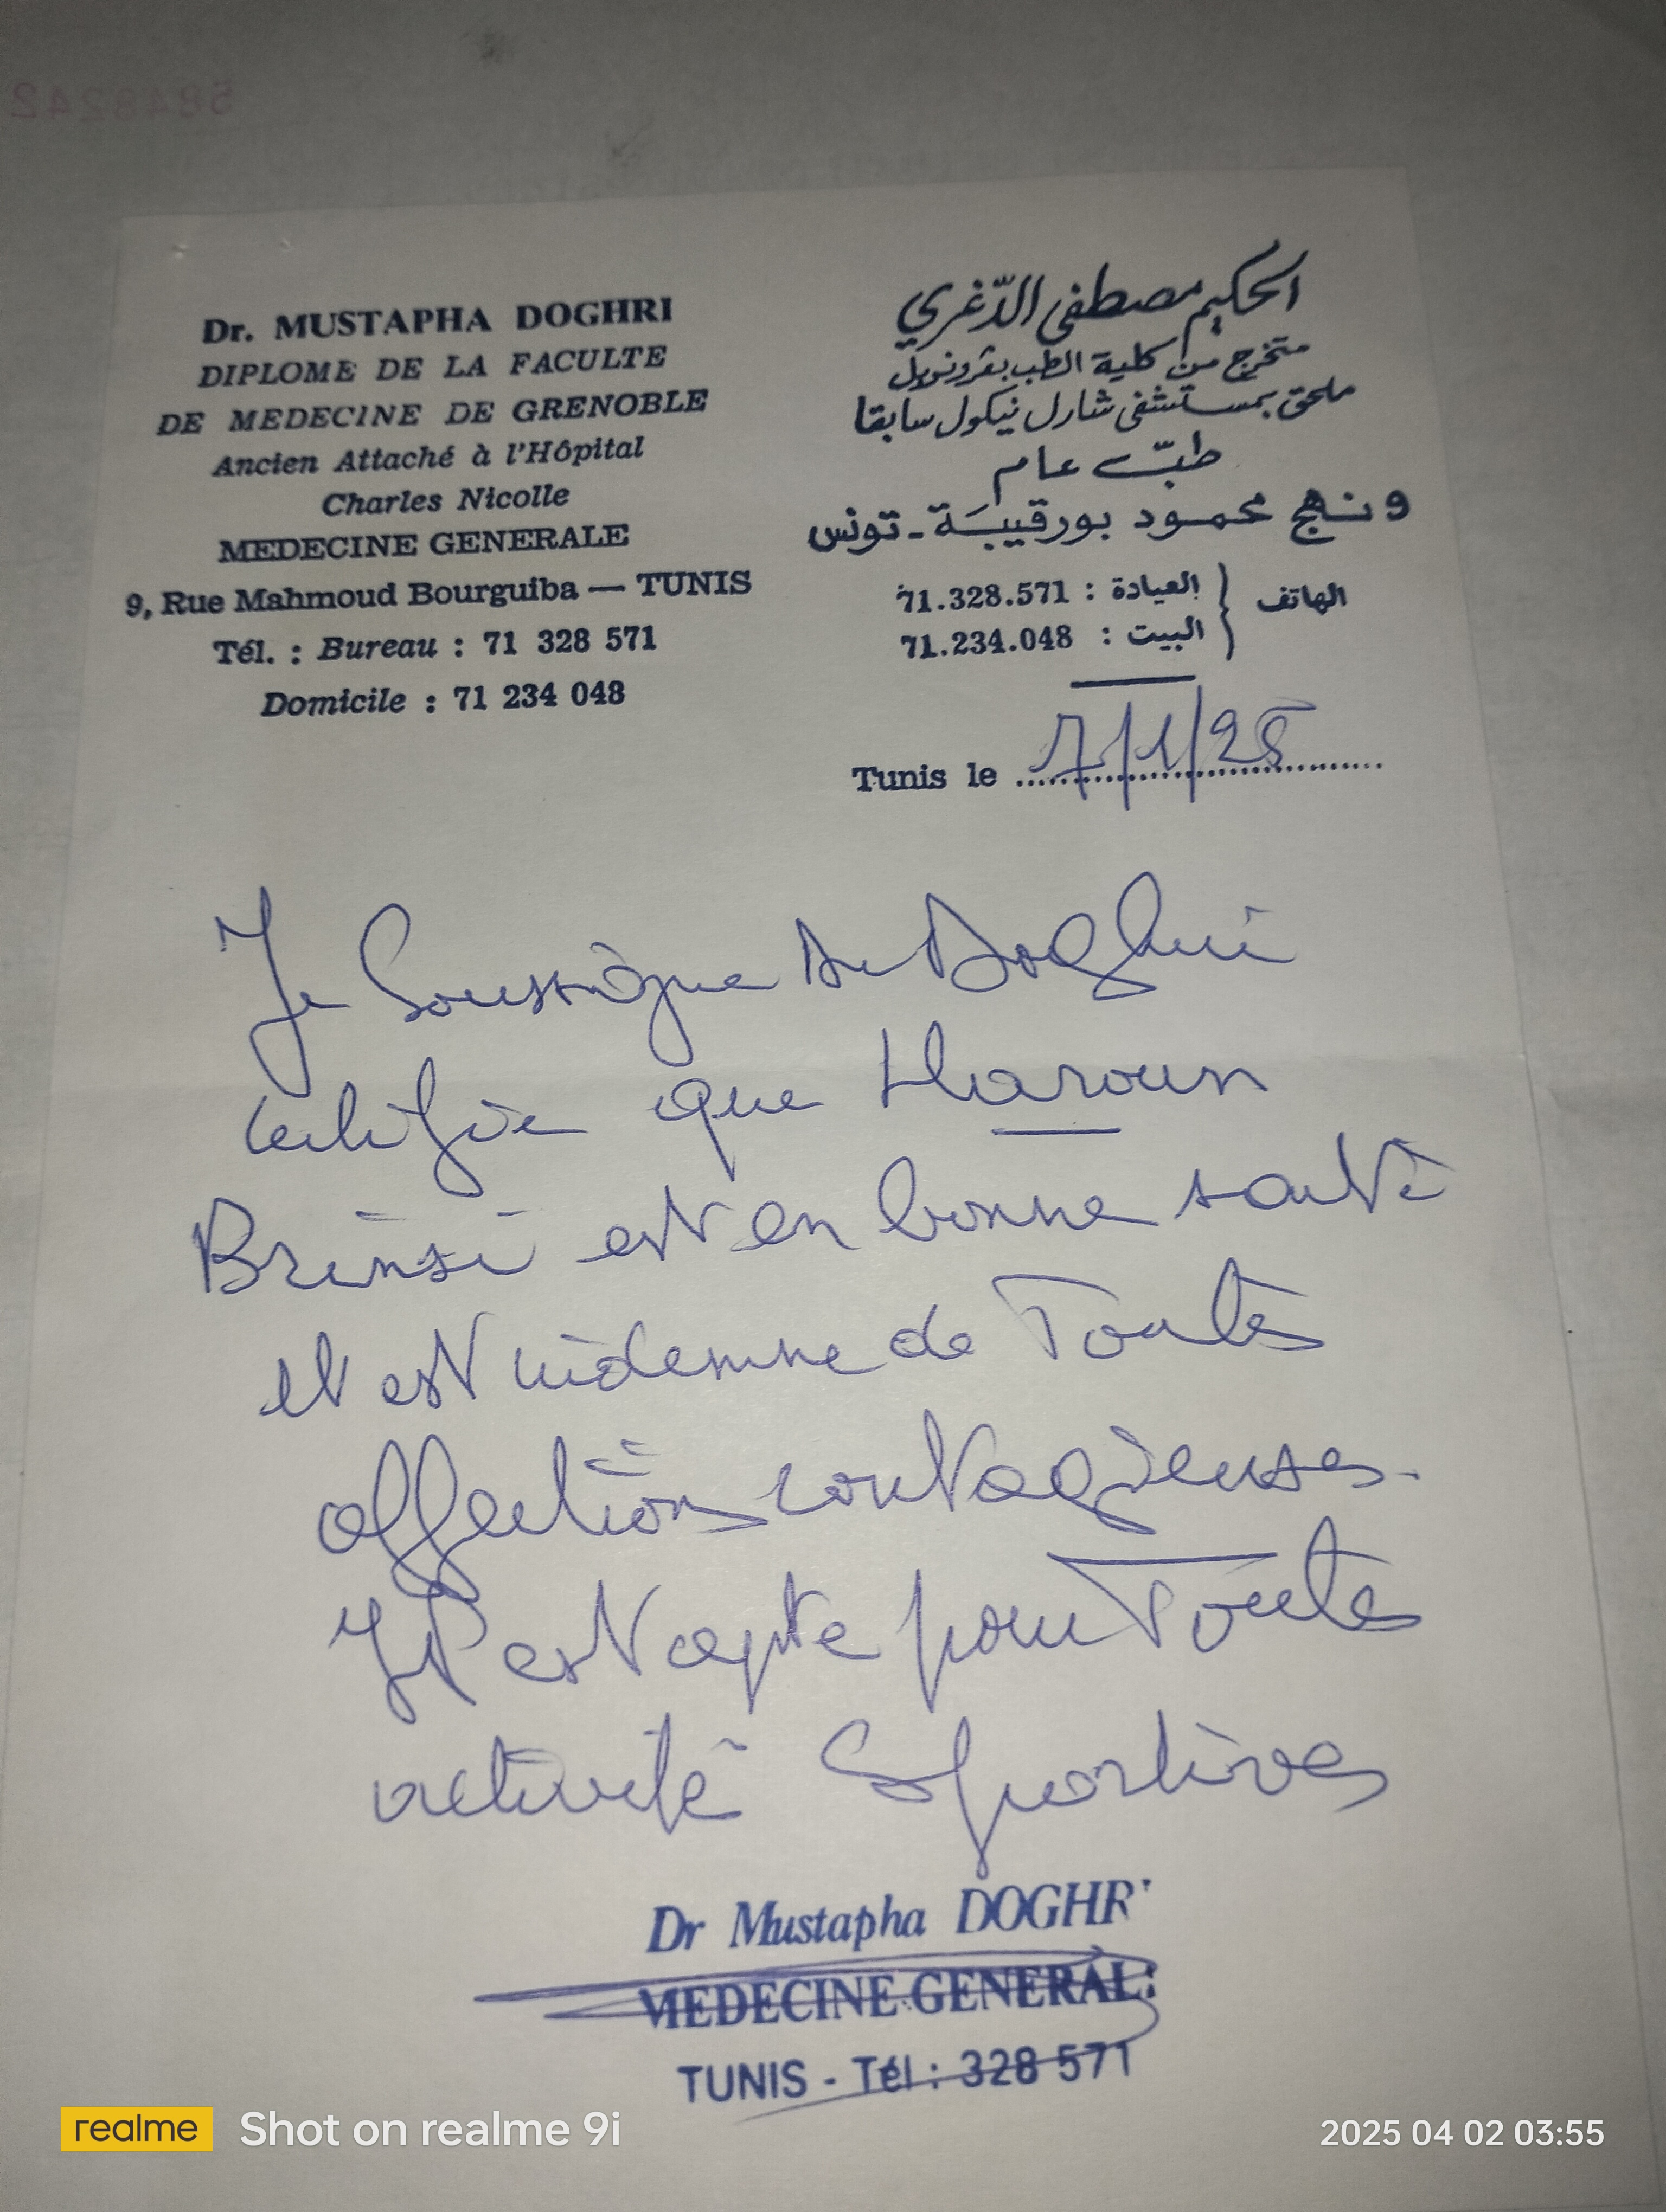 5848242
Dr. MUSTAPHA DOGHRI
DIPLOME DE LA FACULTE
DE MEDECINE DE GRENOBLE
Ancien Attaché à l'Hôpital
Charles Nicolle
MEDECINE GENERALE
9, Rue Mahmoud Bourguiba — TUNIS
Tél. : Bureau : 71 328 571
Domicile : 71 234 048
الحكيم مصطفى الدّغري
متخرج من كلية الطب بقرونوبل
ملحق بمستشفى شارل نيكول سابقا
طبّ عام
9 نهج محمود بورقيبَة - تونس
الهاتف { العيادة : 71.328.571
البيت : 71.234.048
Tunis le 7/1/25
Je Soussigné Dr Doghri
certifie que Haroun
Brinsi est en bonne santé
et est indemne de Toutes
affections contagieuses.
Il est apte pour Toutes
activité Sportives
Dr Mustapha DOGHR
MEDECINE GENERAL
TUNIS - Tél : 328 571
realme Shot on realme 9i
2025 04 02 03:55